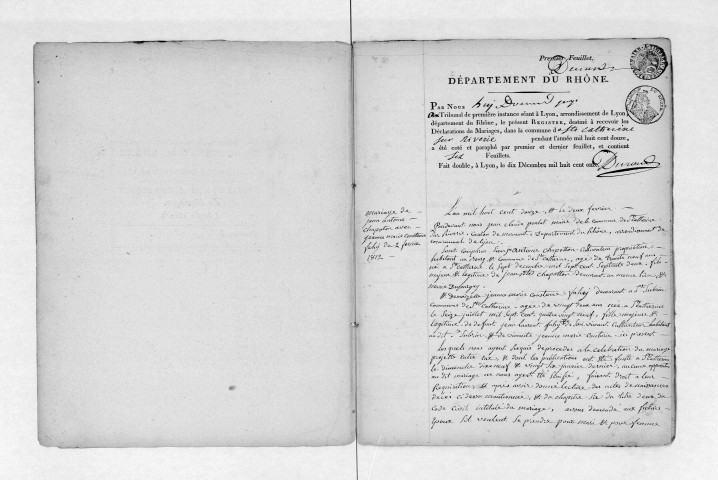 Premier Feuillet.
Durand
DÉPARTEMENT DU RHÔNE.
PAR NOUS Durand juge
Au Tribunal de première instance séant à Lyon, arrondissement de Lyon,
département du Rhône, le présent REGISTRE, destiné à recevoir les
Déclarations de Mariages, dans la commune de Ste Catherine
sur Riverie pendant l'année mil huit cent douze,
a été coté et paraphé par premier et dernier feuillet, et contient
six Feuillets.
Fait double, à Lyon, le dix Décembre mil huit cent onze
Durand
mariage de
jean antoine
chapoton avec
jeanne marie
du 2 fevrier
1812
L'an mil huit cent douze, & le deux fevrier
Pardevant nous jean claude maire de la commune de Ste Catherine
sur Riverie, canton de mornant, Departement du Rhône, arrondissement
communal de Lyon
Sont comparus jean antoine chapoton cultivateur proprietaire
habitant au bourg & commune de Ste Catherine, agé de trente neuf ans
né a Ste Catherine le sept decembre mil sept cent septante deux, fils
majeur & legitime de chapoton demeurant au meme lieu, &
marie
& Demoiselle jeanne marie demeurant a
commune de Ste Catherine, agée de vingt deux ans née a Ste Catherine
le seize juillet mil sept cent quatre vingt neuf, fille majeure &
legitime de defunt jean laurent de son vivant cultivateur habitant
audit & de vivante jeanne marie ici present
Lesquels nous ayant requis de proceder a la celebration du mariage
projetté entre eux, & dont les publications ont été faites a Ste Catherine
le dimanche dix neuf & vingt six janvier dernier, aucune opposition
audit mariage ne nous ayant été, faisant droit a leur
requisition, & après avoir donné lecture des actes de naissances
ci dessus mentionnés, & du chapitre six du titre deux du
code civil intitulé du mariage, avons demandé aux futurs
epoux s'il veulent se prendre pour mari & pour femme